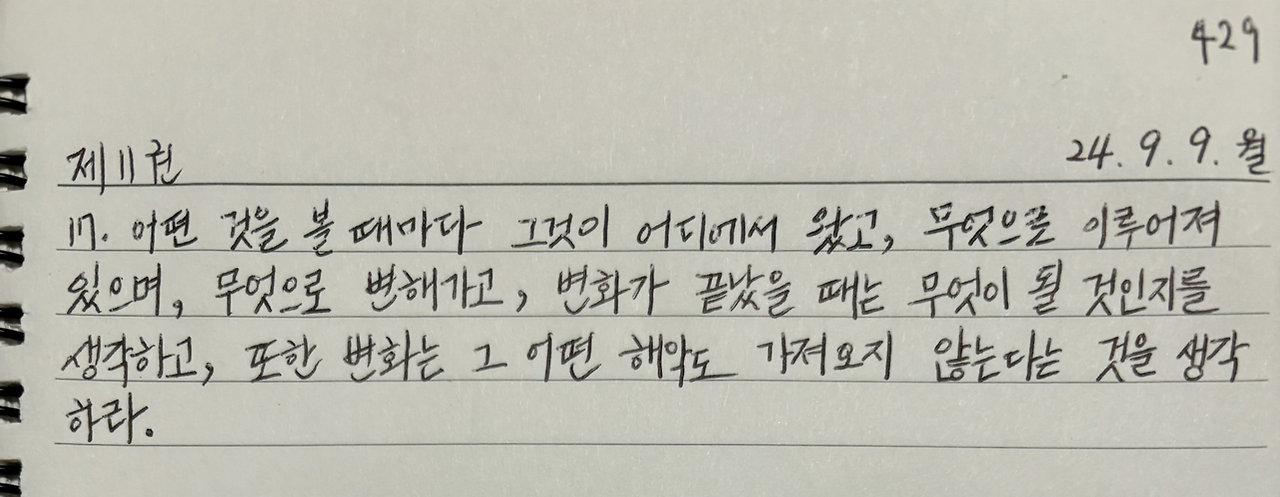 429
제11권 24. 9. 9. 월
17. 어떤 것을 볼 때마다 그것이 어디에서 왔고, 무엇으로 이루어져
있으며, 무엇으로 변해가고, 변화가 끝났을 때는 무엇이 될 것인지를
생각하고, 또한 변화는 그 어떤 해악도 가져오지 않는다는 것을 생각
하라.